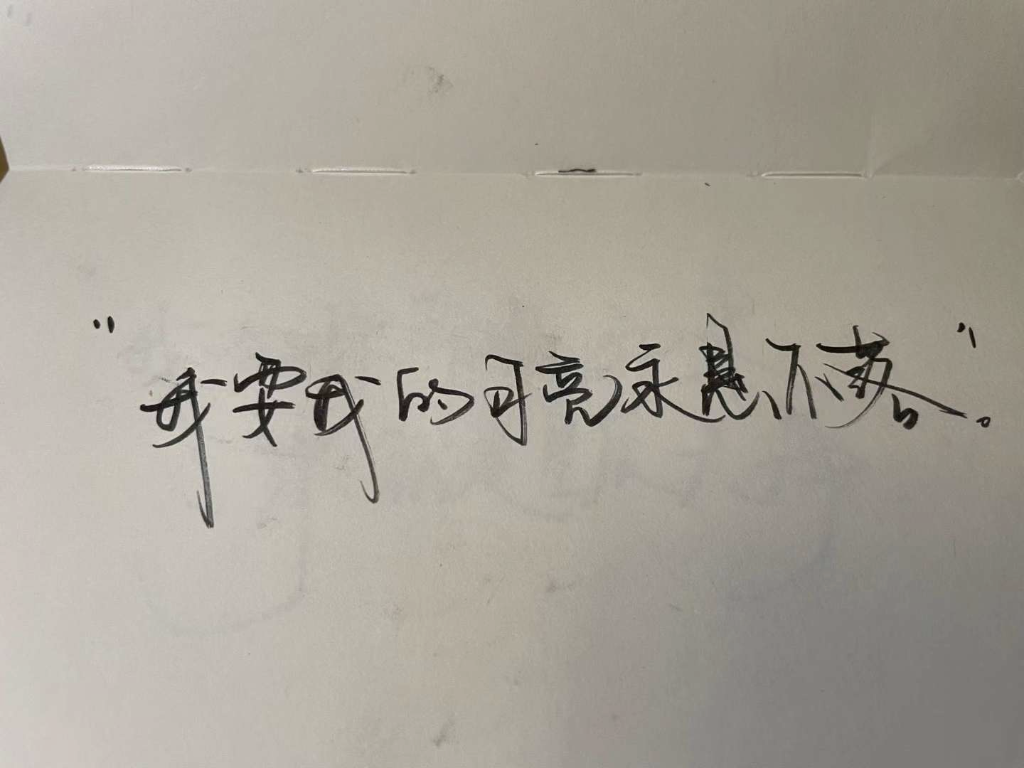 "我要我的月亮永悬不落"。